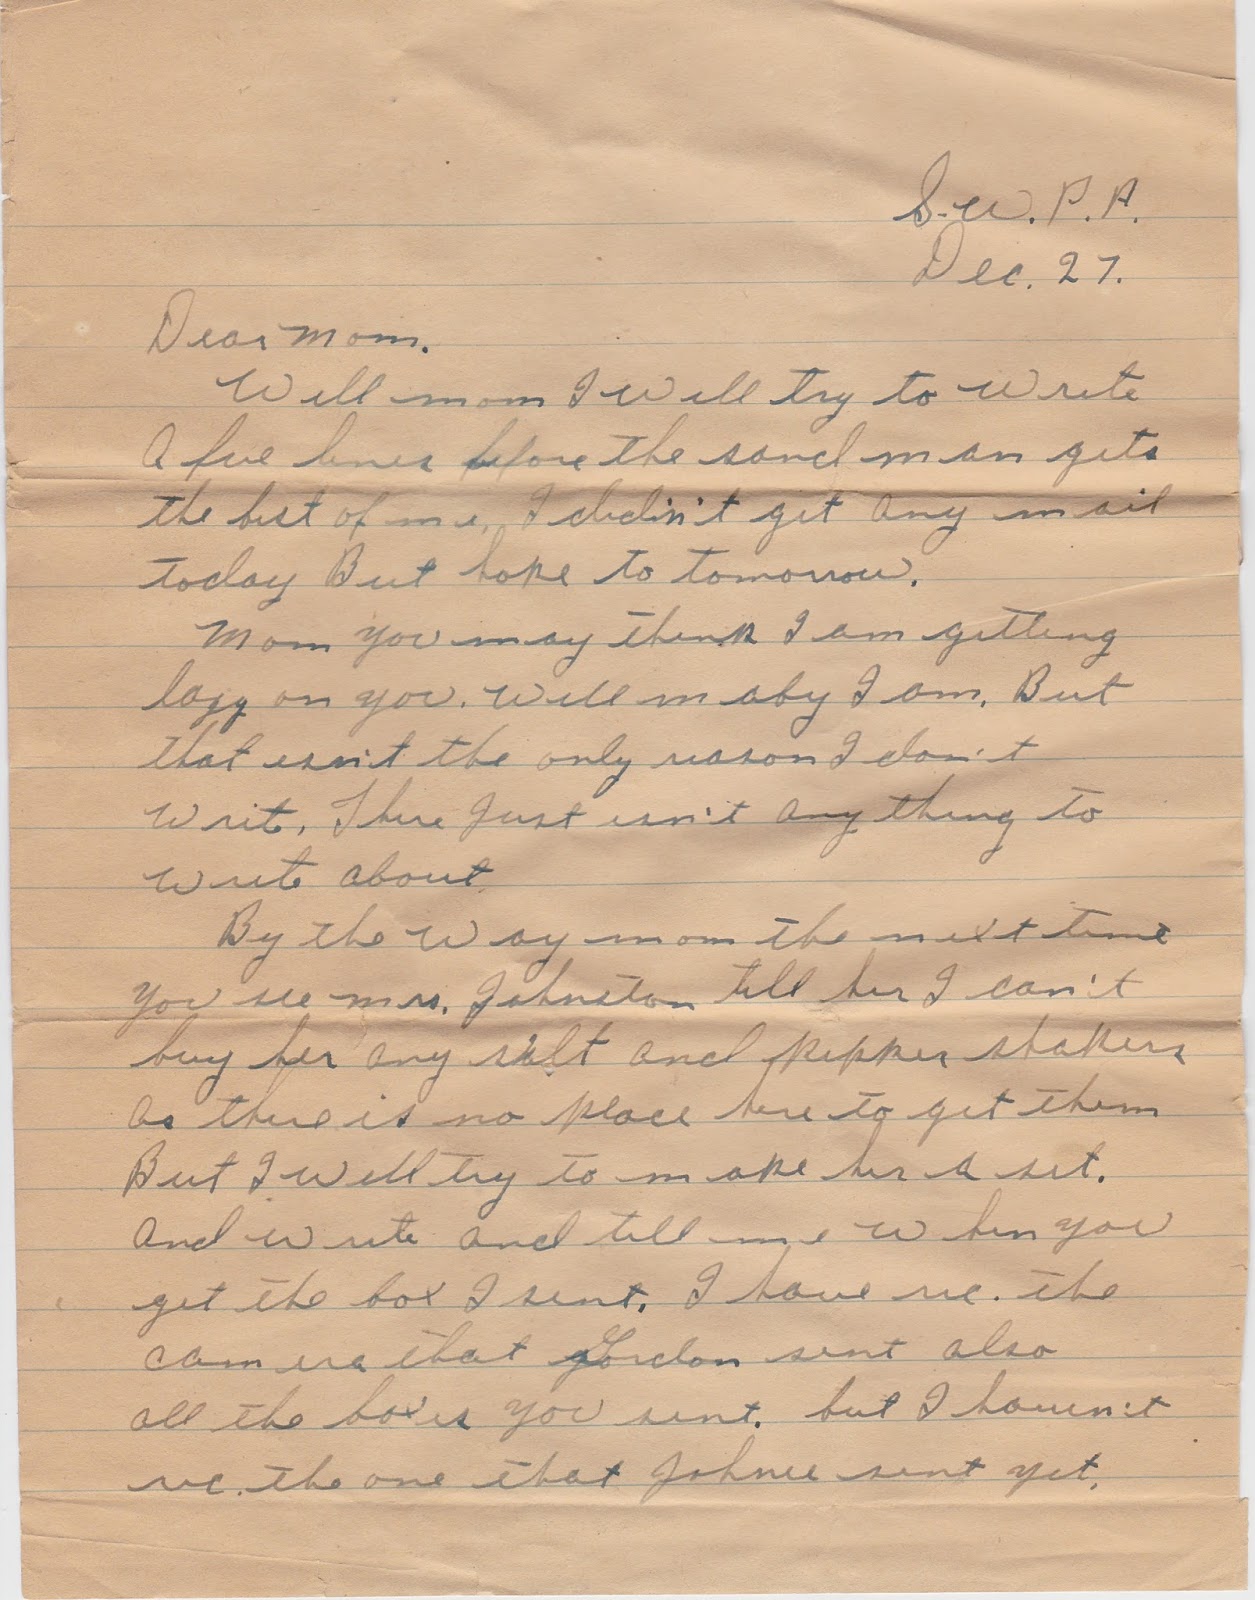 S.W.P.A.
Dec. 27.
Dear Mom.
Well mom I will try to write
a few lines before the sand man gets
the best of me, I didn't get any mail
today But hope to tomorrow.
Mom you may think I am getting
lazy on you. Well maby I am. But
that isn't the only reason I don't
write. There just isn't any thing to
write about.
By the way mom the next time
you see mrs. Johnston tell her I can't
buy her any salt and pepper shakers
as there is no place here to get them
But I will try to make her a set.
And write and tell me when you
get the box I sent. I have rec. the
camera that Gordon sent also
all the boxes you sent. but I haven't
rec. the one that Johnie sent yet.